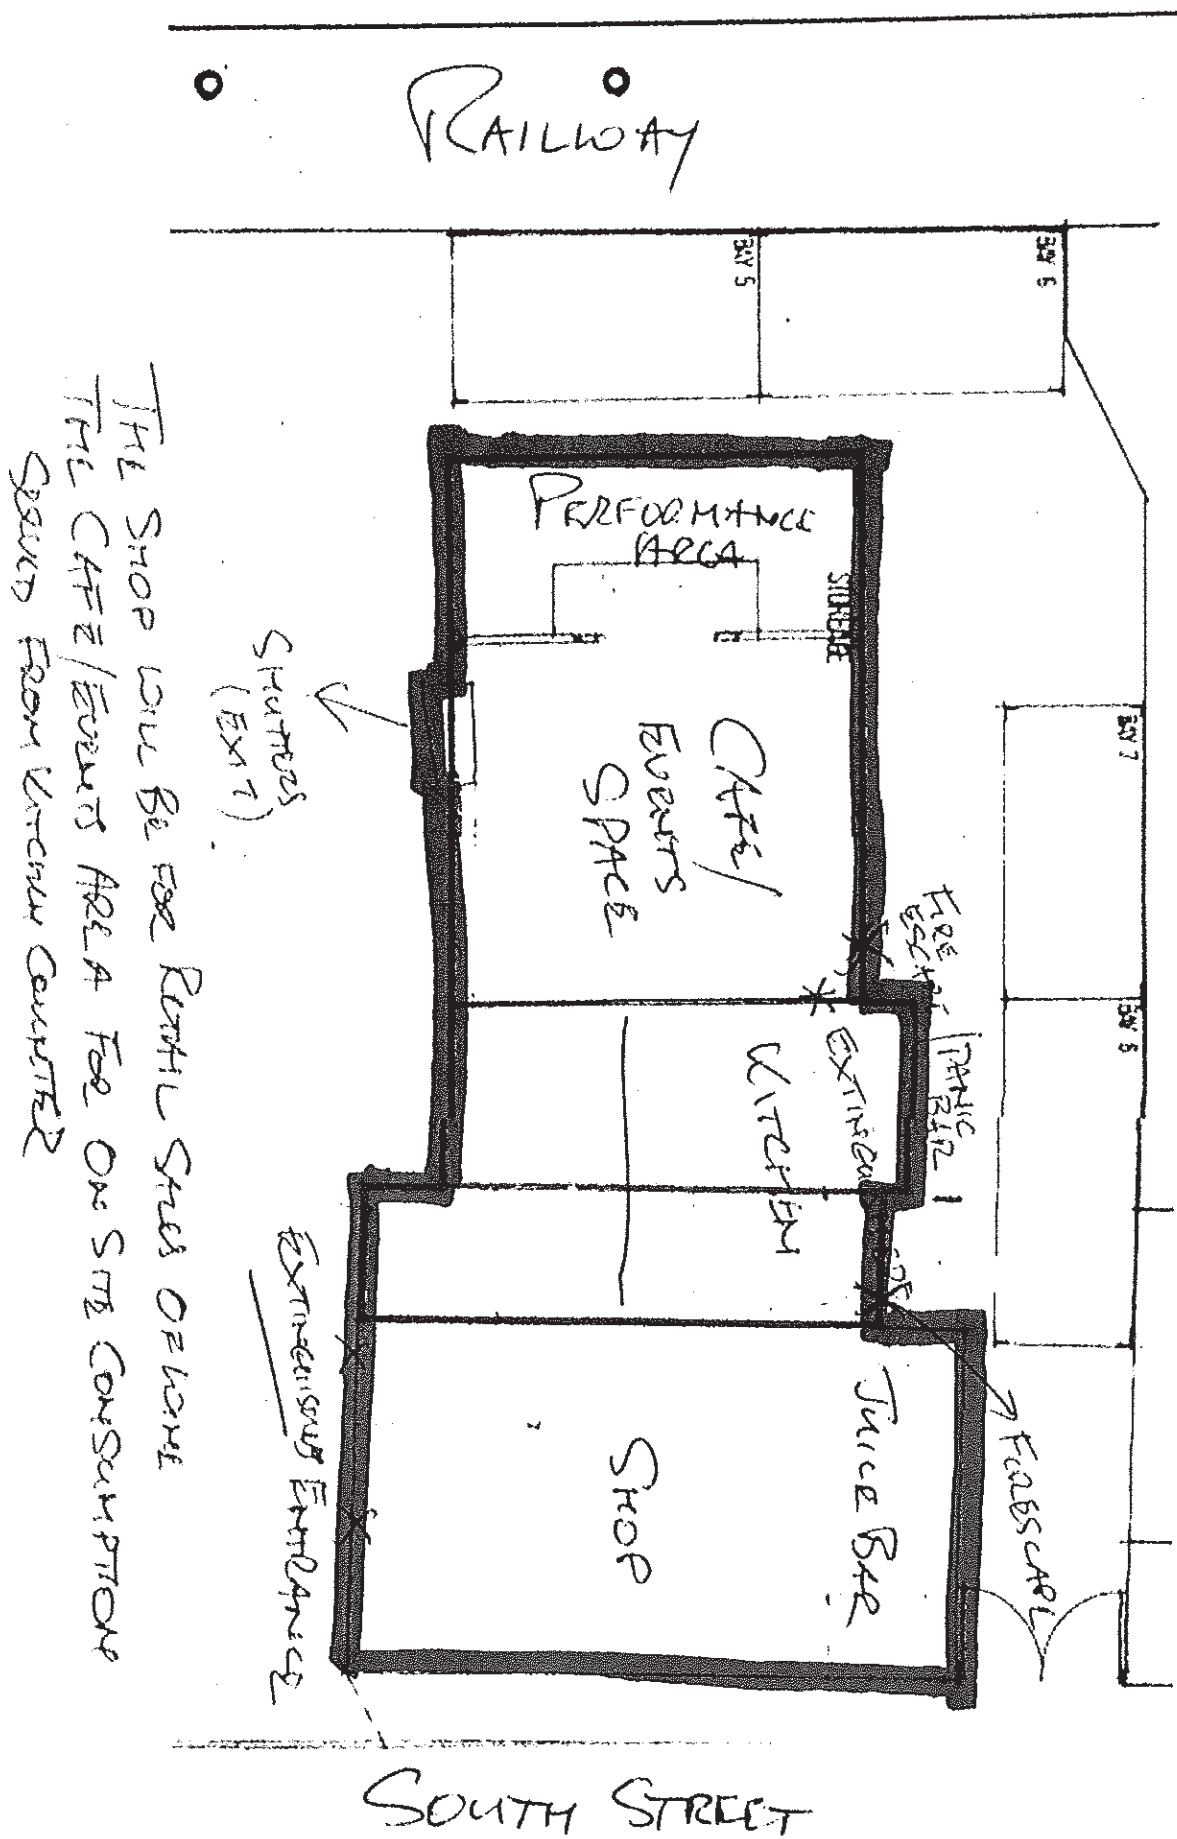 RAILWAY
BAY 5
BAY 6
PERFORMANCE
AREA
STORAGE
CAFE/
EVENTS
SPACE
SHUTTERS
(EXIT)
BAY 7
FIRE
PANIC
BAR
KITCHEN
JUICE BAR
SHOP
FIRESCAPE
ENTRANCE
THE SHOP WILL BE FOR RETAIL SALES OF WINE
THE CAFE/EVENTS AREA FOR ON SITE CONSUMPTION
SERVED FROM KITCHEN COUNTER
SOUTH STREET